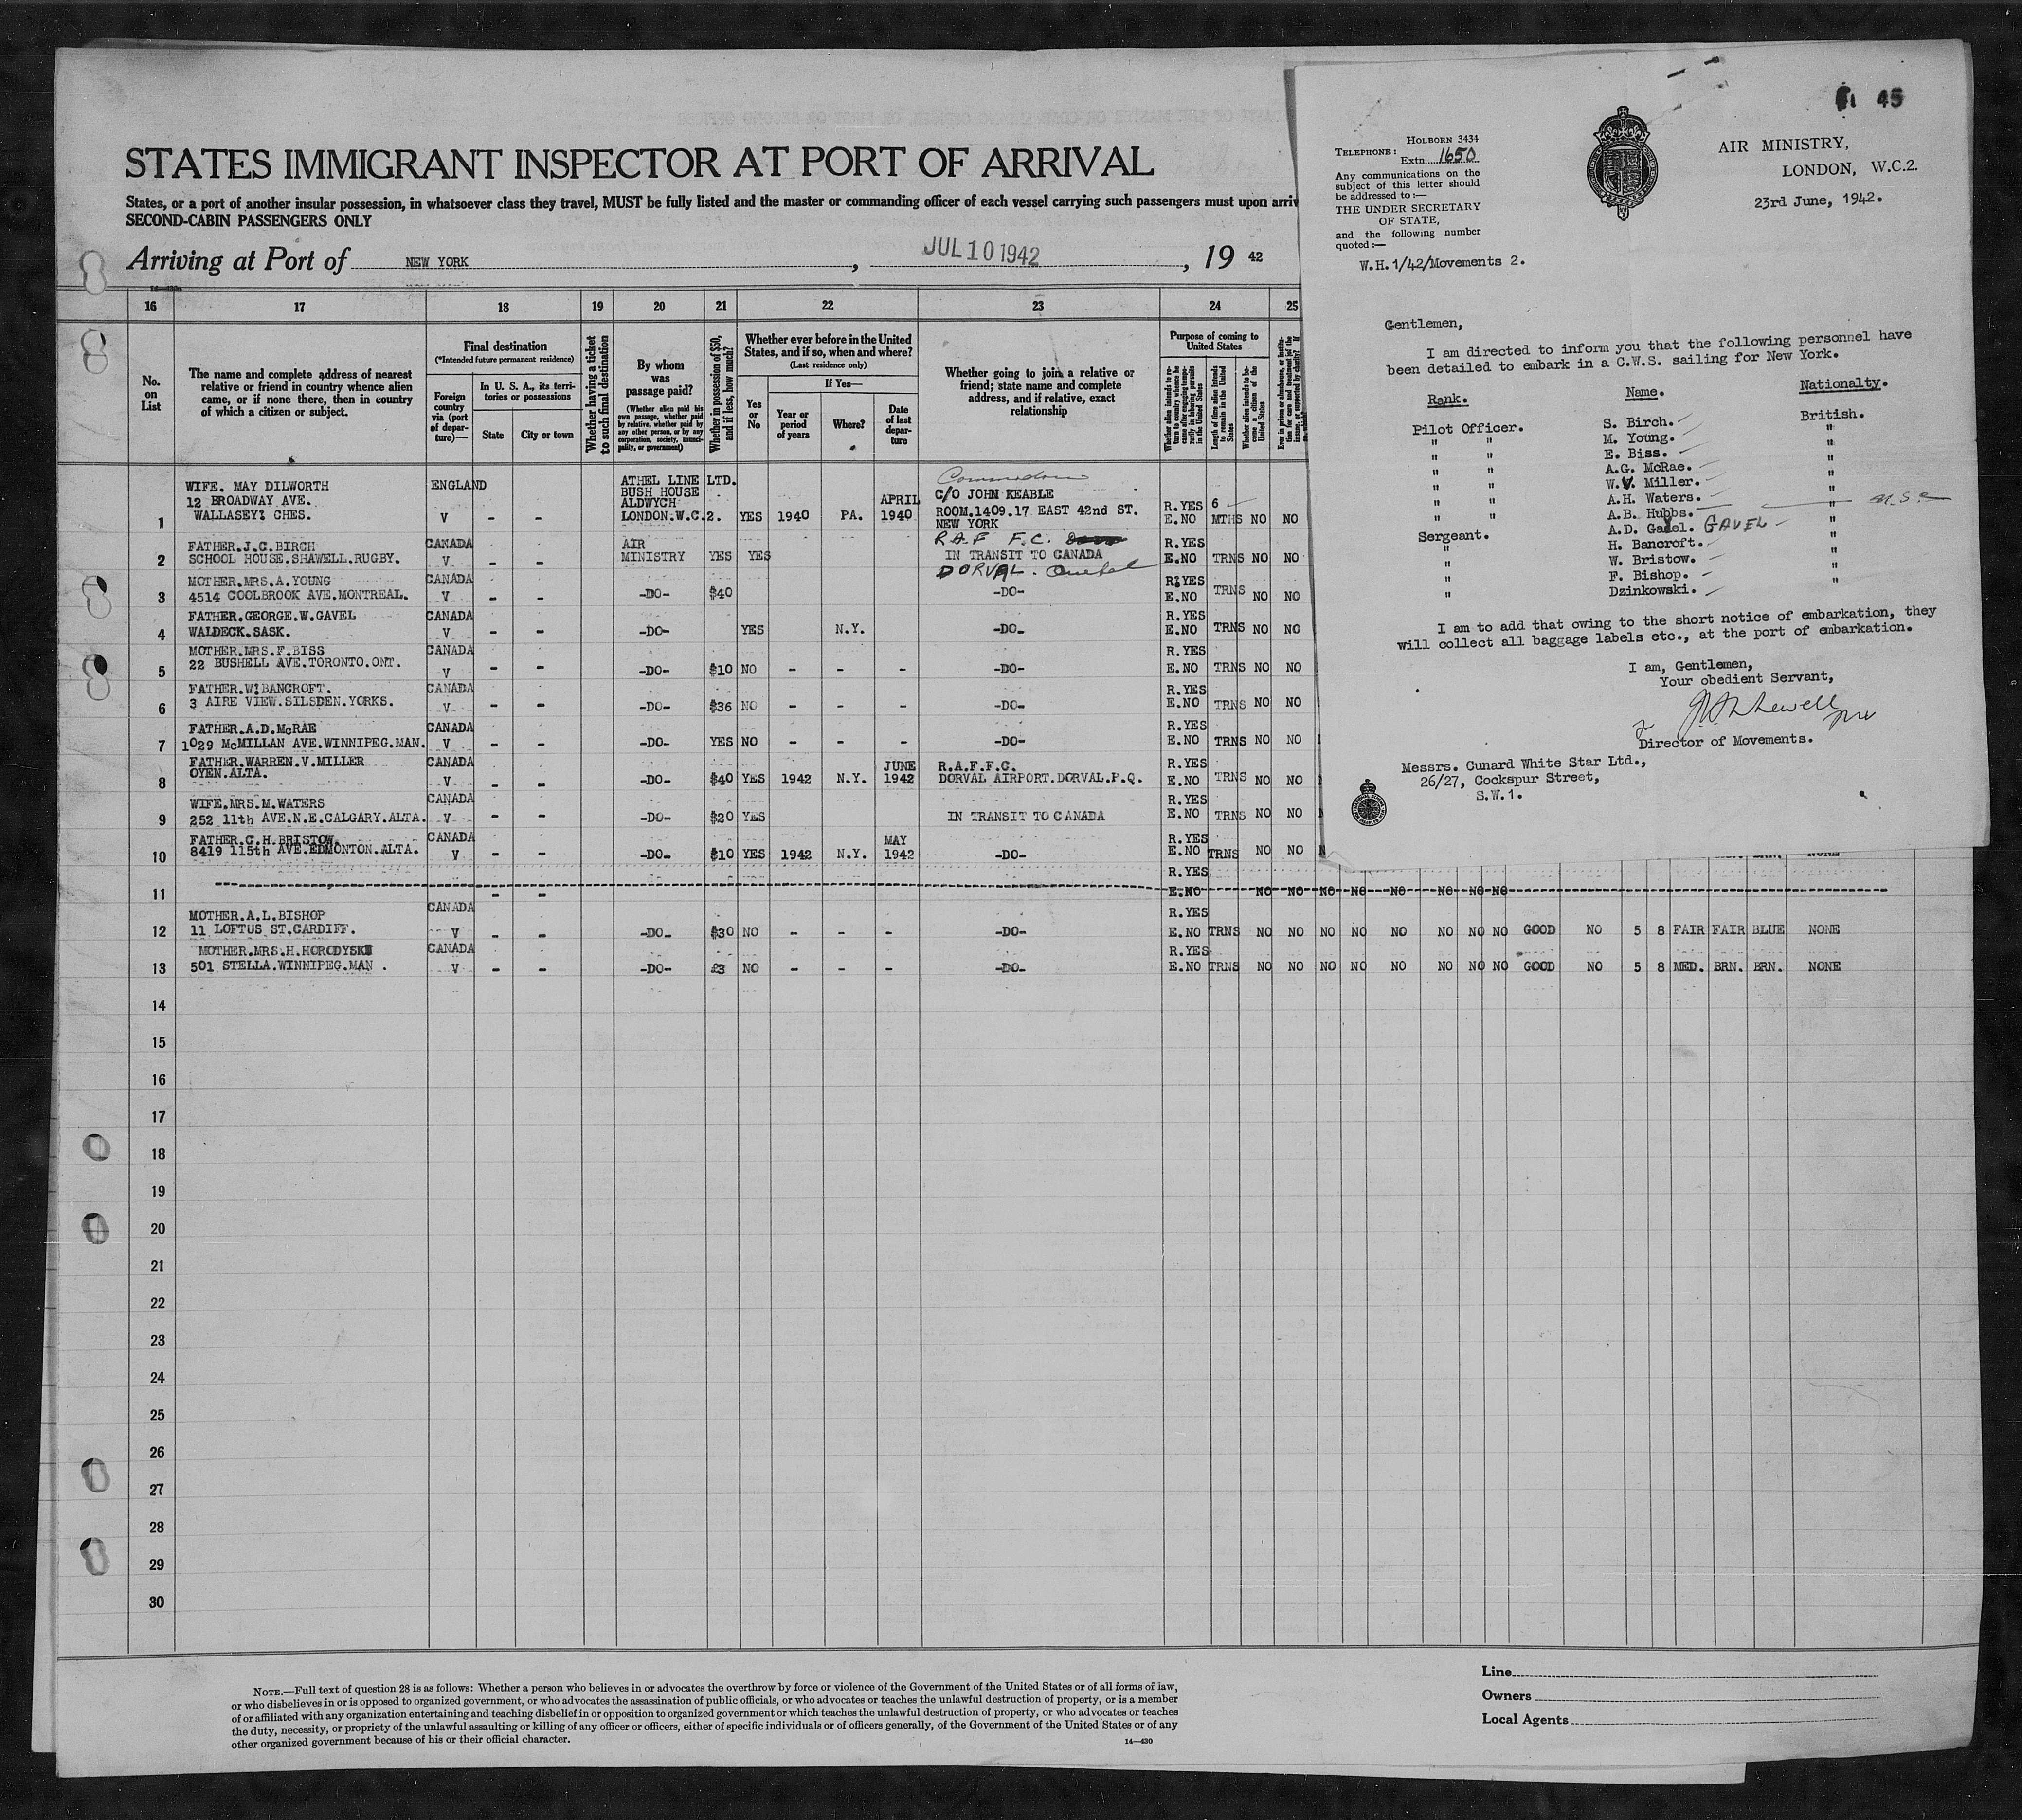 STATES IMMIGRANT INSPECTOR AT PORT OF ARRIVAL
States, or a port of another insular possession, in whatsoever class they travel, MUST be fully listed and the master or commanding officer of each vessel carrying such passengers must upon arriv
SECOND-CABIN PASSENGERS ONLY
Arriving at Port of NEW YORK , JUL 10 1942 , 19 42
16 17 18 19 20 21 22 23 24 25
No. on List
The name and complete address of nearest
relative or friend in country whence alien
came, or if none there, then in country
of which a citizen or subject.
Final destination
(*Intended future permanent residence)
Foreign country via (port of departure)—
In U. S. A., its territories or possessions
State
City or town
Whether having a ticket to such final destination
By whom was passage paid?
(Whether alien paid his own passage, whether paid by relative, whether paid by any other person, or by any corporation, society, municipality, or government)
Whether in possession of $50, and if less, how much?
Whether ever before in the United
States, and if so, when and where?
(Last residence only)
Yes or No
If Yes—
Year or period of years
Where?
Date of last departure
Whether going to join a relative or
friend; state name and complete
address, and if relative, exact
relationship
Purpose of coming to United States
Length of time alien intends to remain in the United States
Whether alien intends to become a citizen of the United States
1 WIFE. MAY DILWORTH
12 BROADWAY AVE.
WALLASEY: CHES. ENGLAND V - - ATHEL LINE LTD.
BUSH HOUSE
ALDWYCH
LONDON.W.C.2. YES 1940 PA. APRIL 1940 C/O JOHN KEABLE
ROOM.1409.17 EAST 42nd ST.
NEW YORK R.YES E.NO 6 MTHS NO NO
2 FATHER.J.C.BIRCH
SCHOOL HOUSE.SHAWELL.RUGBY. CANADA V - - AIR MINISTRY YES YES R.A.F F.C.
IN TRANSIT TO CANADA
DORVAL. Quebec R.YES E.NO TRNS NO NO
3 MOTHER.MRS.A.YOUNG
4514 COOLBROOK AVE.MONTREAL. CANADA V - - -DO- $40 -DO- R.YES E.NO TRNS NO NO
4 FATHER.GEORGE.W.GAVEL
WALDECK.SASK. CANADA V - - -DO- YES N.Y. -DO- R.YES E.NO TRNS NO NO
5 MOTHER.MRS.F.BISS
22 BUSHELL AVE.TORONTO.ONT. CANADA V - - -DO- $10 NO - - - -DO- R.YES E.NO TRNS NO NO
6 FATHER.W:BANCROFT.
3 AIRE VIEW.SILSDEN.YORKS. CANADA V - - -DO- $36 NO - - - -DO- R.YES E.NO TRNS NO NO
7 FATHER.A.D.McRAE
1029 McMILLAN AVE.WINNIPEG.MAN. CANADA V - - -DO- YES NO - - - -DO- R.YES E.NO TRNS NO NO
8 FATHER.WARREN.V.MILLER
OYEN.ALTA. CANADA V - - -DO- $40 YES 1942 N.Y. JUNE 1942 R.A.F.F.C.
DORVAL AIRPORT.DORVAL.P.Q. R.YES E.NO TRNS NO NO
9 WIFE.MRS.M.WATERS
252 11th AVE.N.E.CALGARY.ALTA. CANADA V - - -DO- $20 YES IN TRANSIT TO CANADA R.YES E.NO TRNS NO NO
10 FATHER.C.H.BRISTOW.
8419 115th AVE.EDMONTON.ALTA. CANADA V - - -DO- $10 YES 1942 N.Y. MAY 1942 -DO- R.YES E.NO TRNS NO NO
11 - - R.YES E.NO NO NO NO NO NO NO NO NO
12 MOTHER.A.L.BISHOP
11 LOFTUS ST.CARDIFF. CANADA V - - -DO- $30 NO - - - -DO- R.YES E.NO TRNS NO NO NO NO NO NO NO NO GOOD NO 5 8 FAIR FAIR BLUE NONE
13 MOTHER.MRS.H.HORODYSKI
501 STELLA.WINNIPEG.MAN . CANADA V - - -DO- £3 NO - - - -DO- R.YES E.NO TRNS NO NO NO NO NO NO NO NO GOOD NO 5 8 MED. BRN. BRN. NONE
14
15
16
17
18
19
20
21
22
23
24
25
26
27
28
29
30
NOTE.—Full text of question 28 is as follows: Whether a person who believes in or advocates the overthrow by force or violence of the Government of the United States or of all forms of law,
or who disbelieves in or is opposed to organized government, or who advocates the assassination of public officials, or who advocates or teaches the unlawful destruction of property, or is a member
of or affiliated with any organization entertaining and teaching disbelief in or opposition to organized government or which teaches the unlawful destruction of property, or who advocates or teaches
the duty, necessity, or propriety of the unlawful assaulting or killing of any officer or officers, either of specific individuals or of officers generally, of the Government of the United States or of any
other organized government because of his or their official character.
14—430
Line
Owners
Local Agents
45
HOLBORN 3434
TELEPHONE:
Extn. 1650
Any communications on the
subject of this letter should
be addressed to :—
THE UNDER SECRETARY
OF STATE,
and the following number
quoted :—
W.H.1/42/Movements 2.
AIR MINISTRY,
LONDON, W.C.2.
23rd June, 1942.
Gentlemen,
I am directed to inform you that the following personnel have
been detailed to embark in a C.W.S. sailing for New York.
Rank. Name. Nationalty.
Pilot Officer. S. Birch. British.
" " M. Young. "
" " E. Biss. "
" " A.G. McRae. "
" " W.V. Miller. "
" " A.H. Waters. "
" " A.B. Hubbs. " U.S.C
" " A.D. Gavel. GAVEL "
Sergeant. H. Bancroft. "
" W. Bristow. "
" F. Bishop. "
" Dzinkowski. "
I am to add that owing to the short notice of embarkation, they
will collect all baggage labels etc., at the port of embarkation.
I am, Gentlemen,
Your obedient Servant,
Director of Movements.
Messrs. Cunard White Star Ltd.,
26/27, Cockspur Street,
S.W.1.